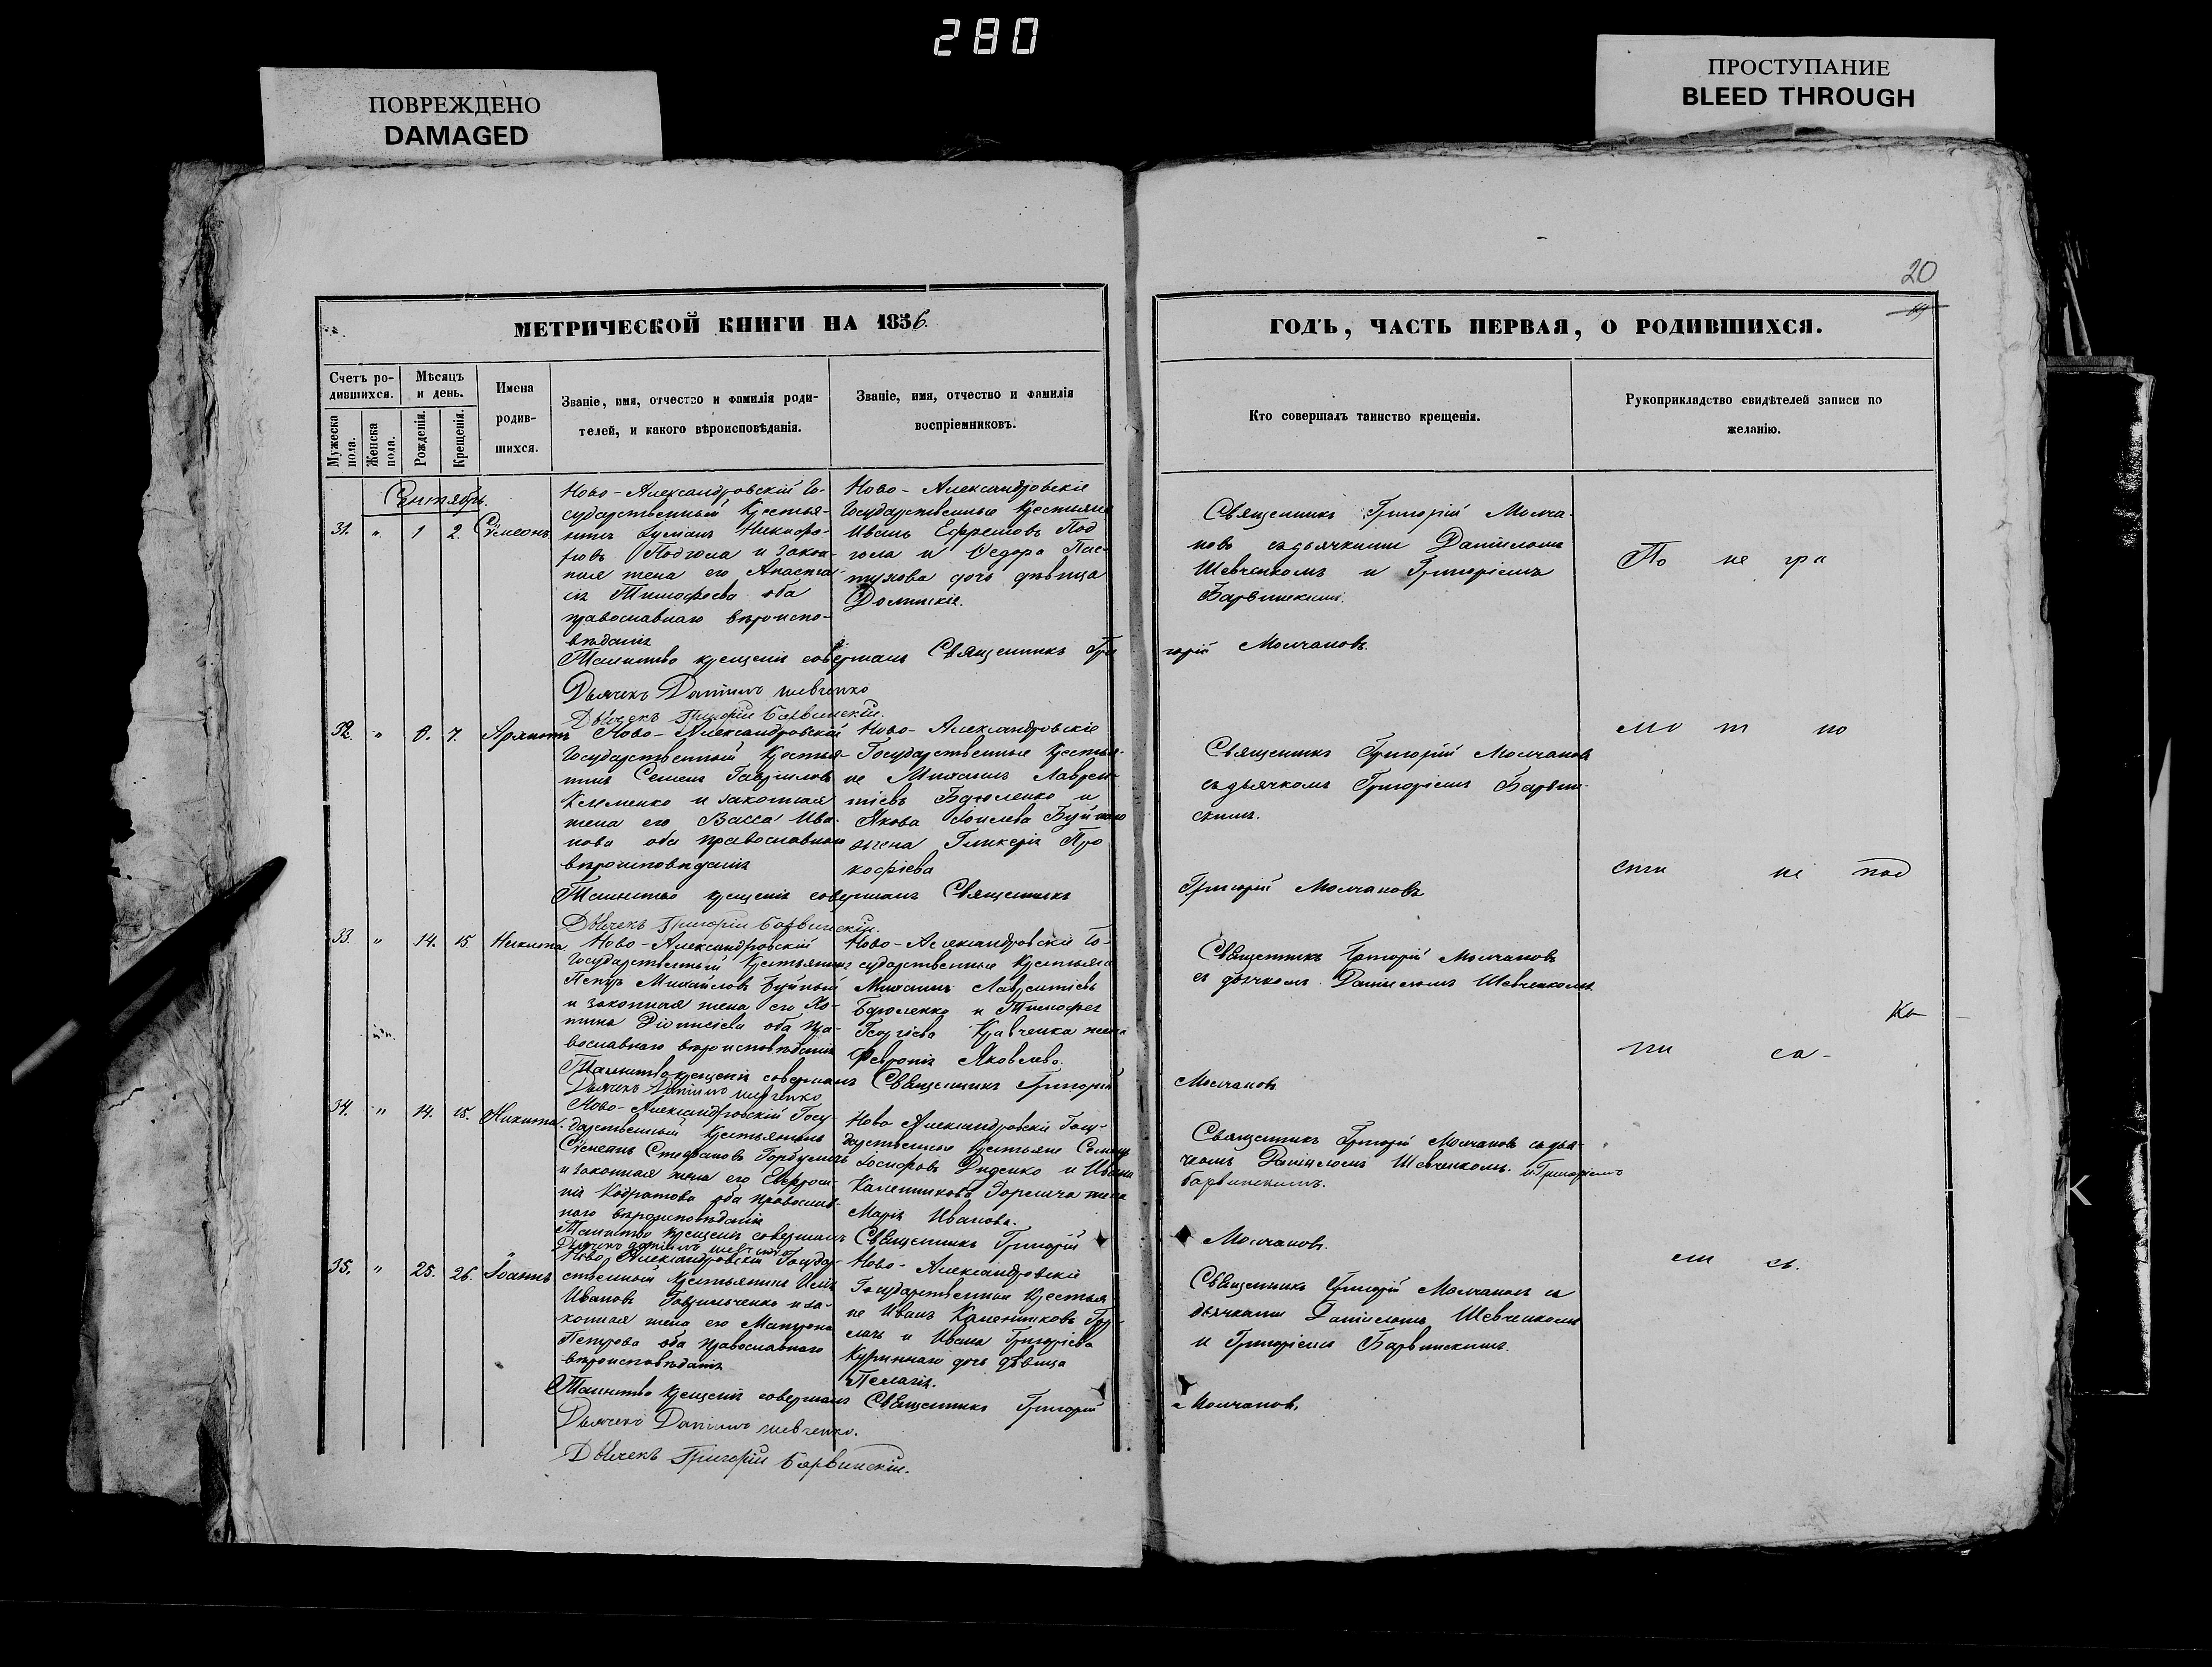 280
ПОВРЕЖДЕНО
DAMAGED
ПРОСТУПАНИЕ
BLEED THROUGH
20
МЕТРИЧЕСКОЙ КНИГИ НА 1856.
ГОДЪ, ЧАСТЬ ПЕРВАЯ, О РОДИВШИХСЯ.
Счетъ ро-
дившихся.
Мужеска пола.
Женска пола.
Мѣсяцъ
и день.
Рожденія.
Крещенія.
Имена
родив-
шихся.
Званіе, имя, отчество и фамилія роди-
телей, и какого вѣроисповѣданія.
Званіе, имя, отчество и фамилія
воспріемниковъ.
Кто совершалъ таинство крещенія.
Рукоприкладство свидѣтелей записи по
желанію.
Сентябрь.
31. " 1 2. Сѵмеонъ
Ново-Александровскій Го-
сударственный Крестья-
нинъ Никифо-
ровъ Подгола и закон-
ная жена его Анастасі
ія Тимофеева оба
православнаго вѣроиспо-
вѣданія
Ново-Александровскіе
Государственные Крестьяне
Иванъ Ефремовъ Под
гола и Ѳедора Пас-
тухова дочь дѣвица
Священникъ Григорій Молча-
новъ съ дьячками Даніиломъ
Шевченкомъ и Григоріемъ
Барвинскимъ.
По не гра
Таинство крещенія совершалъ Священникъ Гри
горій Молчановъ.
Дьячекъ Даніилъ Шевченко
Дьячекъ Григорій Барвинскій.
32. " 6. 7.
Ново-Александровскій
Государственный Крестья-
нинъ Семенъ Гавріиловъ
Клименко и законная
жена его Васса Ива-
нова оба православнаго
вѣроисповѣданія
Ново-Александровскіе
Государственные Крестья-
не Михаилъ Лаврен-
тіевъ Бдюленко и
Якова Буйнаго
жена Гликерія Про
кофіева
Священникъ Григорій Молчановъ
съ дьячкомъ Григоріемъ Барвин-
скимъ.
мо т но
Таинство крещенія совершалъ Священникъ
Григорій Молчановъ
сти ні под
Дьячекъ Григорій Барвинскій.
33. " 14. 15 Никита
Ново-Александровскій
Государственный Крестьянинъ
Петръ Михайловъ Буйный
и законная жена его Хо-
тина Діонисіева оба пра-
вославнаго вѣроисповѣданія
Ново-Александровскіе Го-
сударственные Крестьяне
Михаилъ Лаврентіевъ
Бдюленко и Тимофея
Георгіева Кравченка жена
Февронія Яковлева.
Священникъ Григорій Молчановъ
съ дьячкомъ Даніиломъ Шевченкомъ
са-
Таинство крещенія совершалъ Священникъ Григорій
Молчановъ
Дьячекъ Даніилъ Шевченко
34. " 14. 15. Никита.
Ново-Александровскій Госу-
дарственный Крестьянинъ
Сѵмеонъ Стефановъ
и законная жена его Евфроси-
нія Кодратова оба православ-
наго вѣроисповѣданія
Ново Александровскіе Госу-
дарственные Крестьяне Семенъ
Іосифовъ Диденко и Ивана
Калениковa жена
Марія Иванова.
Священникъ Григорій Молчановъ съ дья-
чкомъ Даніиломъ Шевченкомъ. и Григоріемъ
Барвинскимъ.
Таинство крещенія совершалъ Священникъ Григорій
Молчановъ.
Дьячекъ Даніилъ Шевченко
35. " 25. 26. Іоаннъ
Ново-Александровскій Государ-
ственный Крестьянинъ Илія
Ивановъ Гаврильченко и за-
конная жена его Матрона
Петрова оба православнаго
вѣроисповѣданія
Ново-Александровскіе
Государственные Крестья
не Иванъ Калениковъ
и Ивана Григоріева
Куриннаго дочь дѣвица
Пелагія.
Священникъ Григорій Молчановъ съ
дьячками Даніиломъ Шевченкомъ
и Григоріемъ Барвинскимъ.
Таинство крещенія совершалъ Священникъ Григорій
Молчановъ.
Дьячекъ Даніилъ Шевченко.
Дьячекъ Григорій Барвинскій.